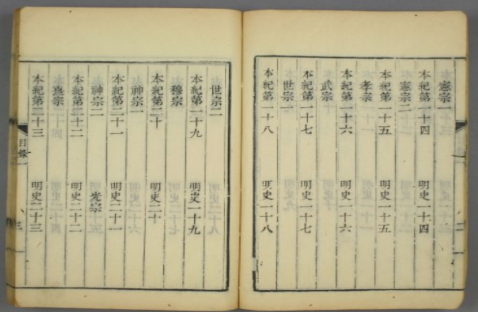 憲宗一
本紀第一十四 明史一十四
憲宗二
本紀第一十五 明史一十五
孝宗
本紀第一十六 明史一十六
武宗
本紀第一十七 明史一十七
世宗一
本紀第一十八 明史一十八
世宗二
本紀第一十九 明史一十九
穆宗
本紀第二十 明史二十
神宗一
本紀第二十一 明史二十一
神宗二 光宗
本紀第二十二 明史二十二
熹宗
本紀第二十三 明史二十三
目錄